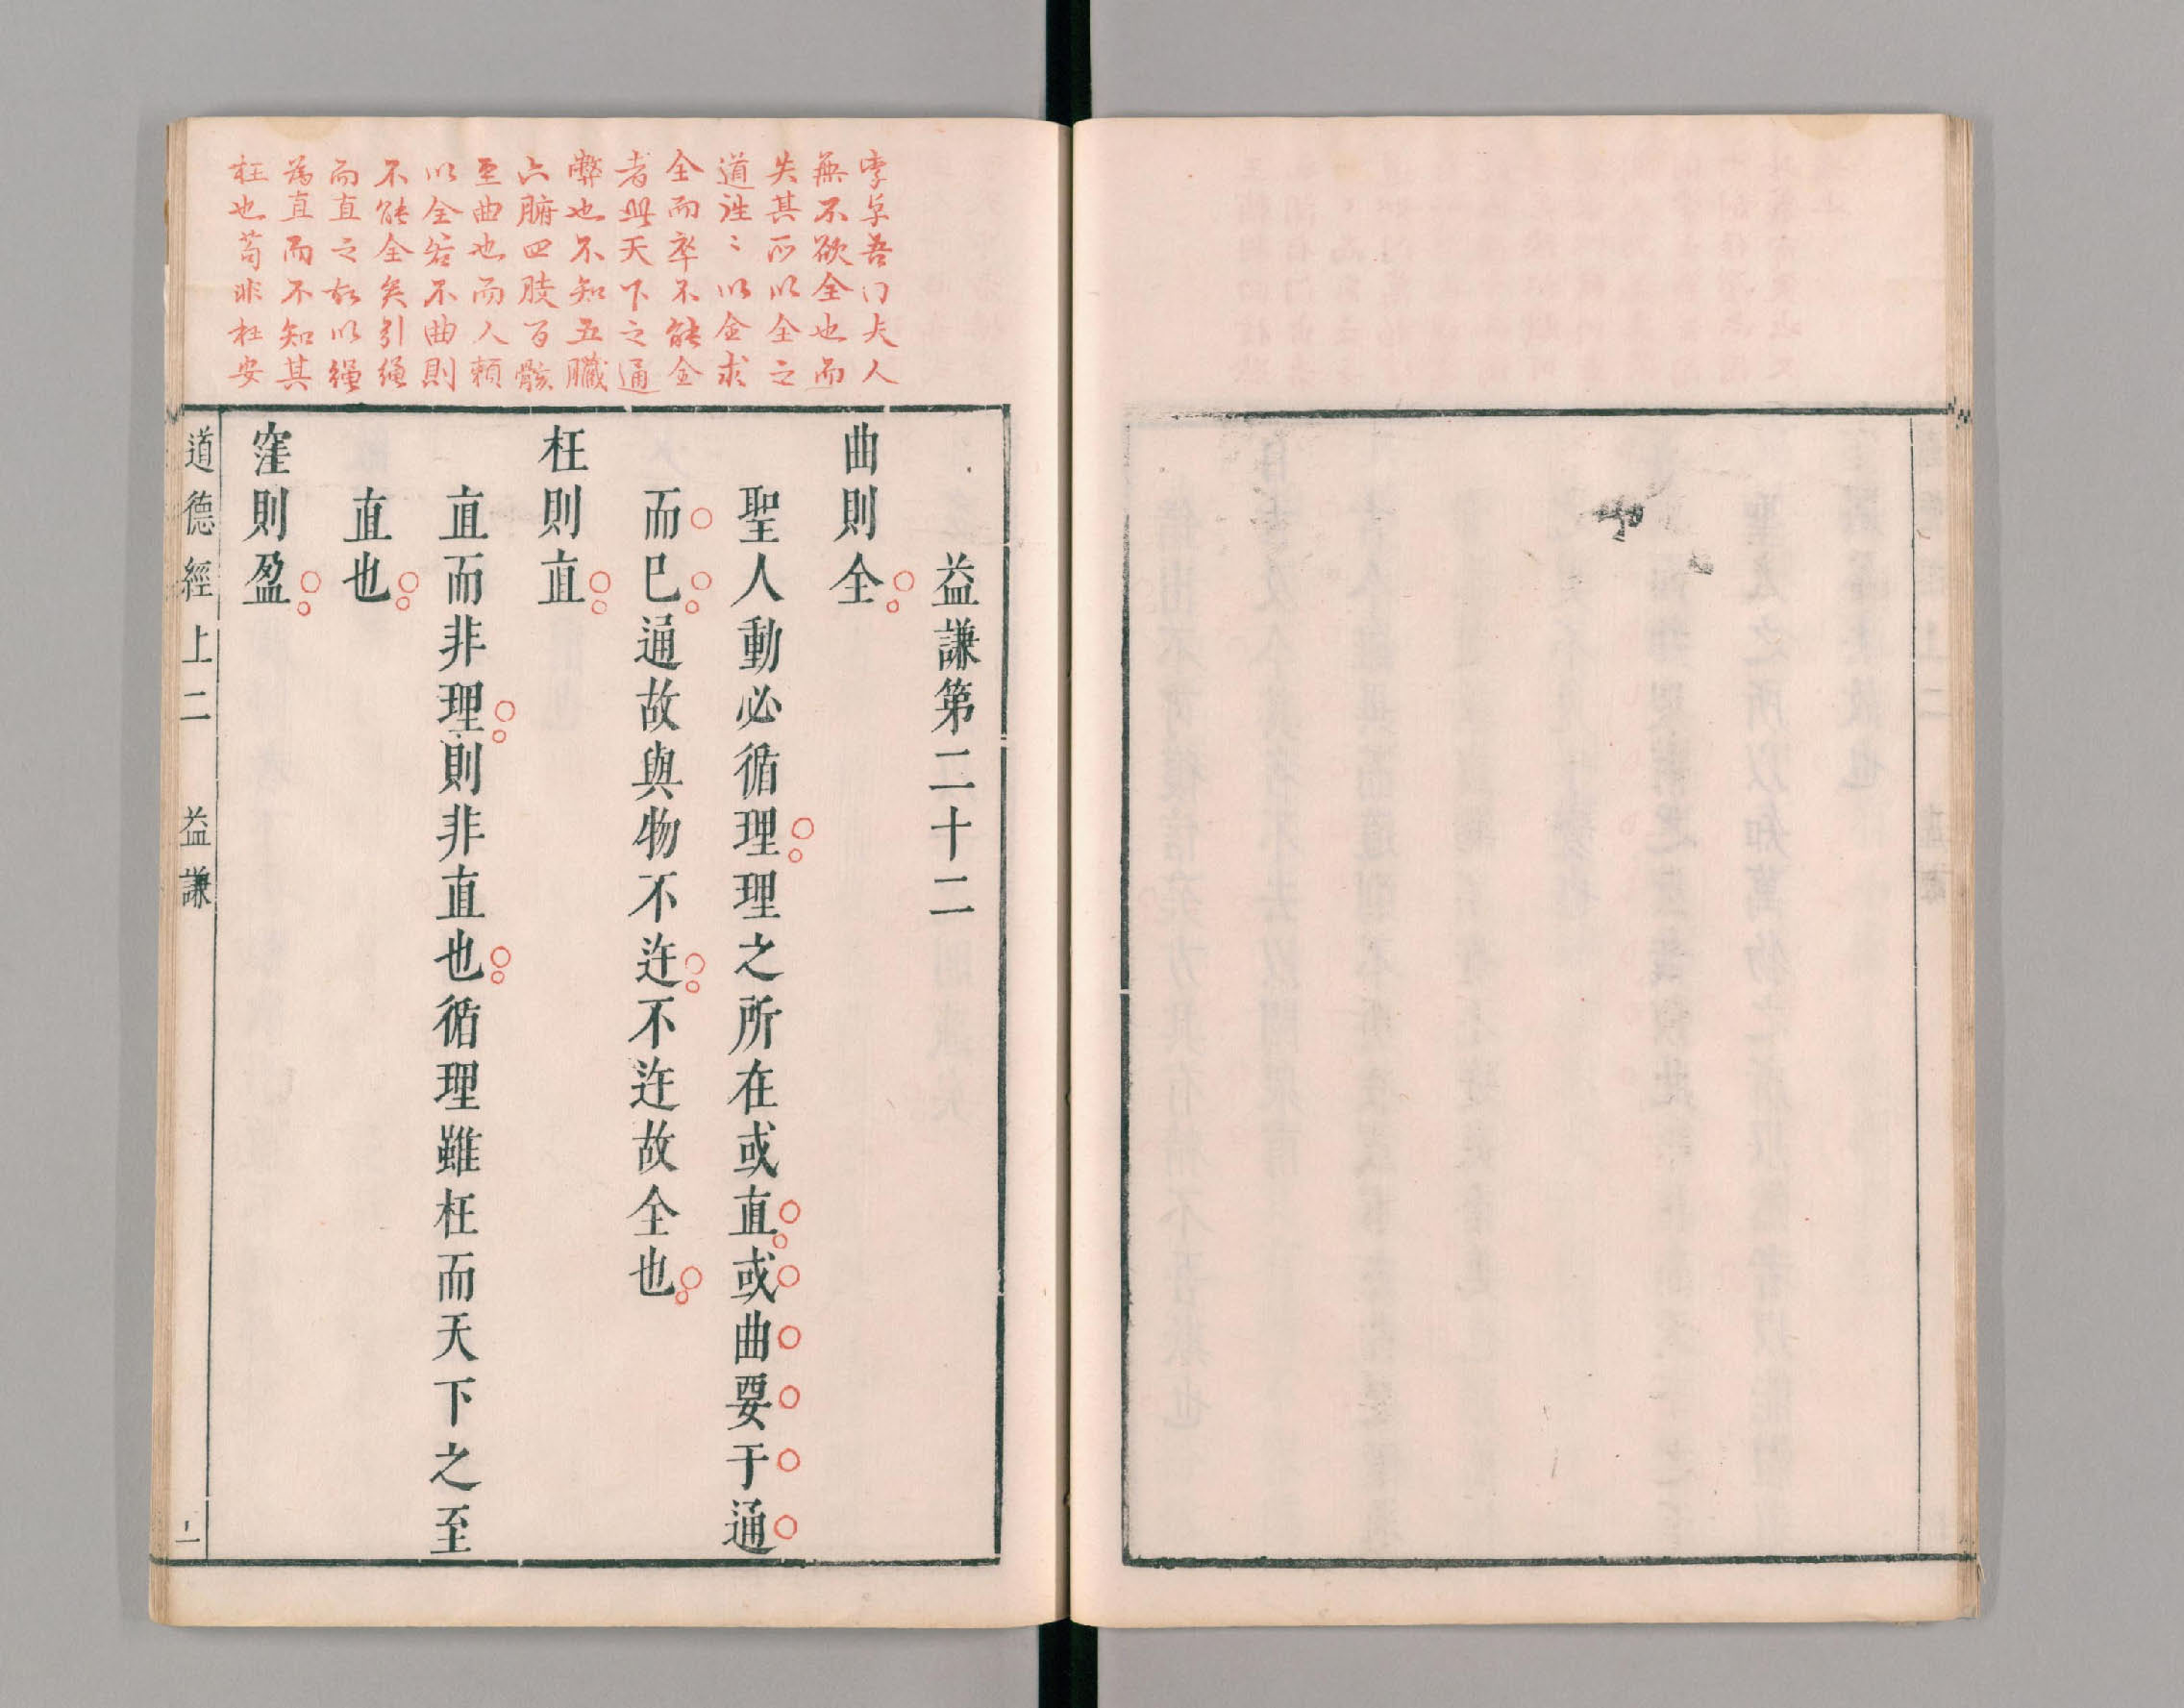 李卓吾曰夫人
無不欲全也而
失其所以全之
道徃〻以全求
全而卒不能全
者此天下之通
弊也不知五臟
六腑四肢百骸
至曲也而人賴
以全若不曲則
不能全矣引繩
而直之故以繩
為直而不知其
枉也苟非枉安
益謙第二十二
曲則全
聖人動必循理理之所在或直或曲要于通
而已通故與物不迕不迕故全也
枉則直
直而非理則非直也循理雖枉而天下之至
直也
窪則盈
道德經上二 益謙